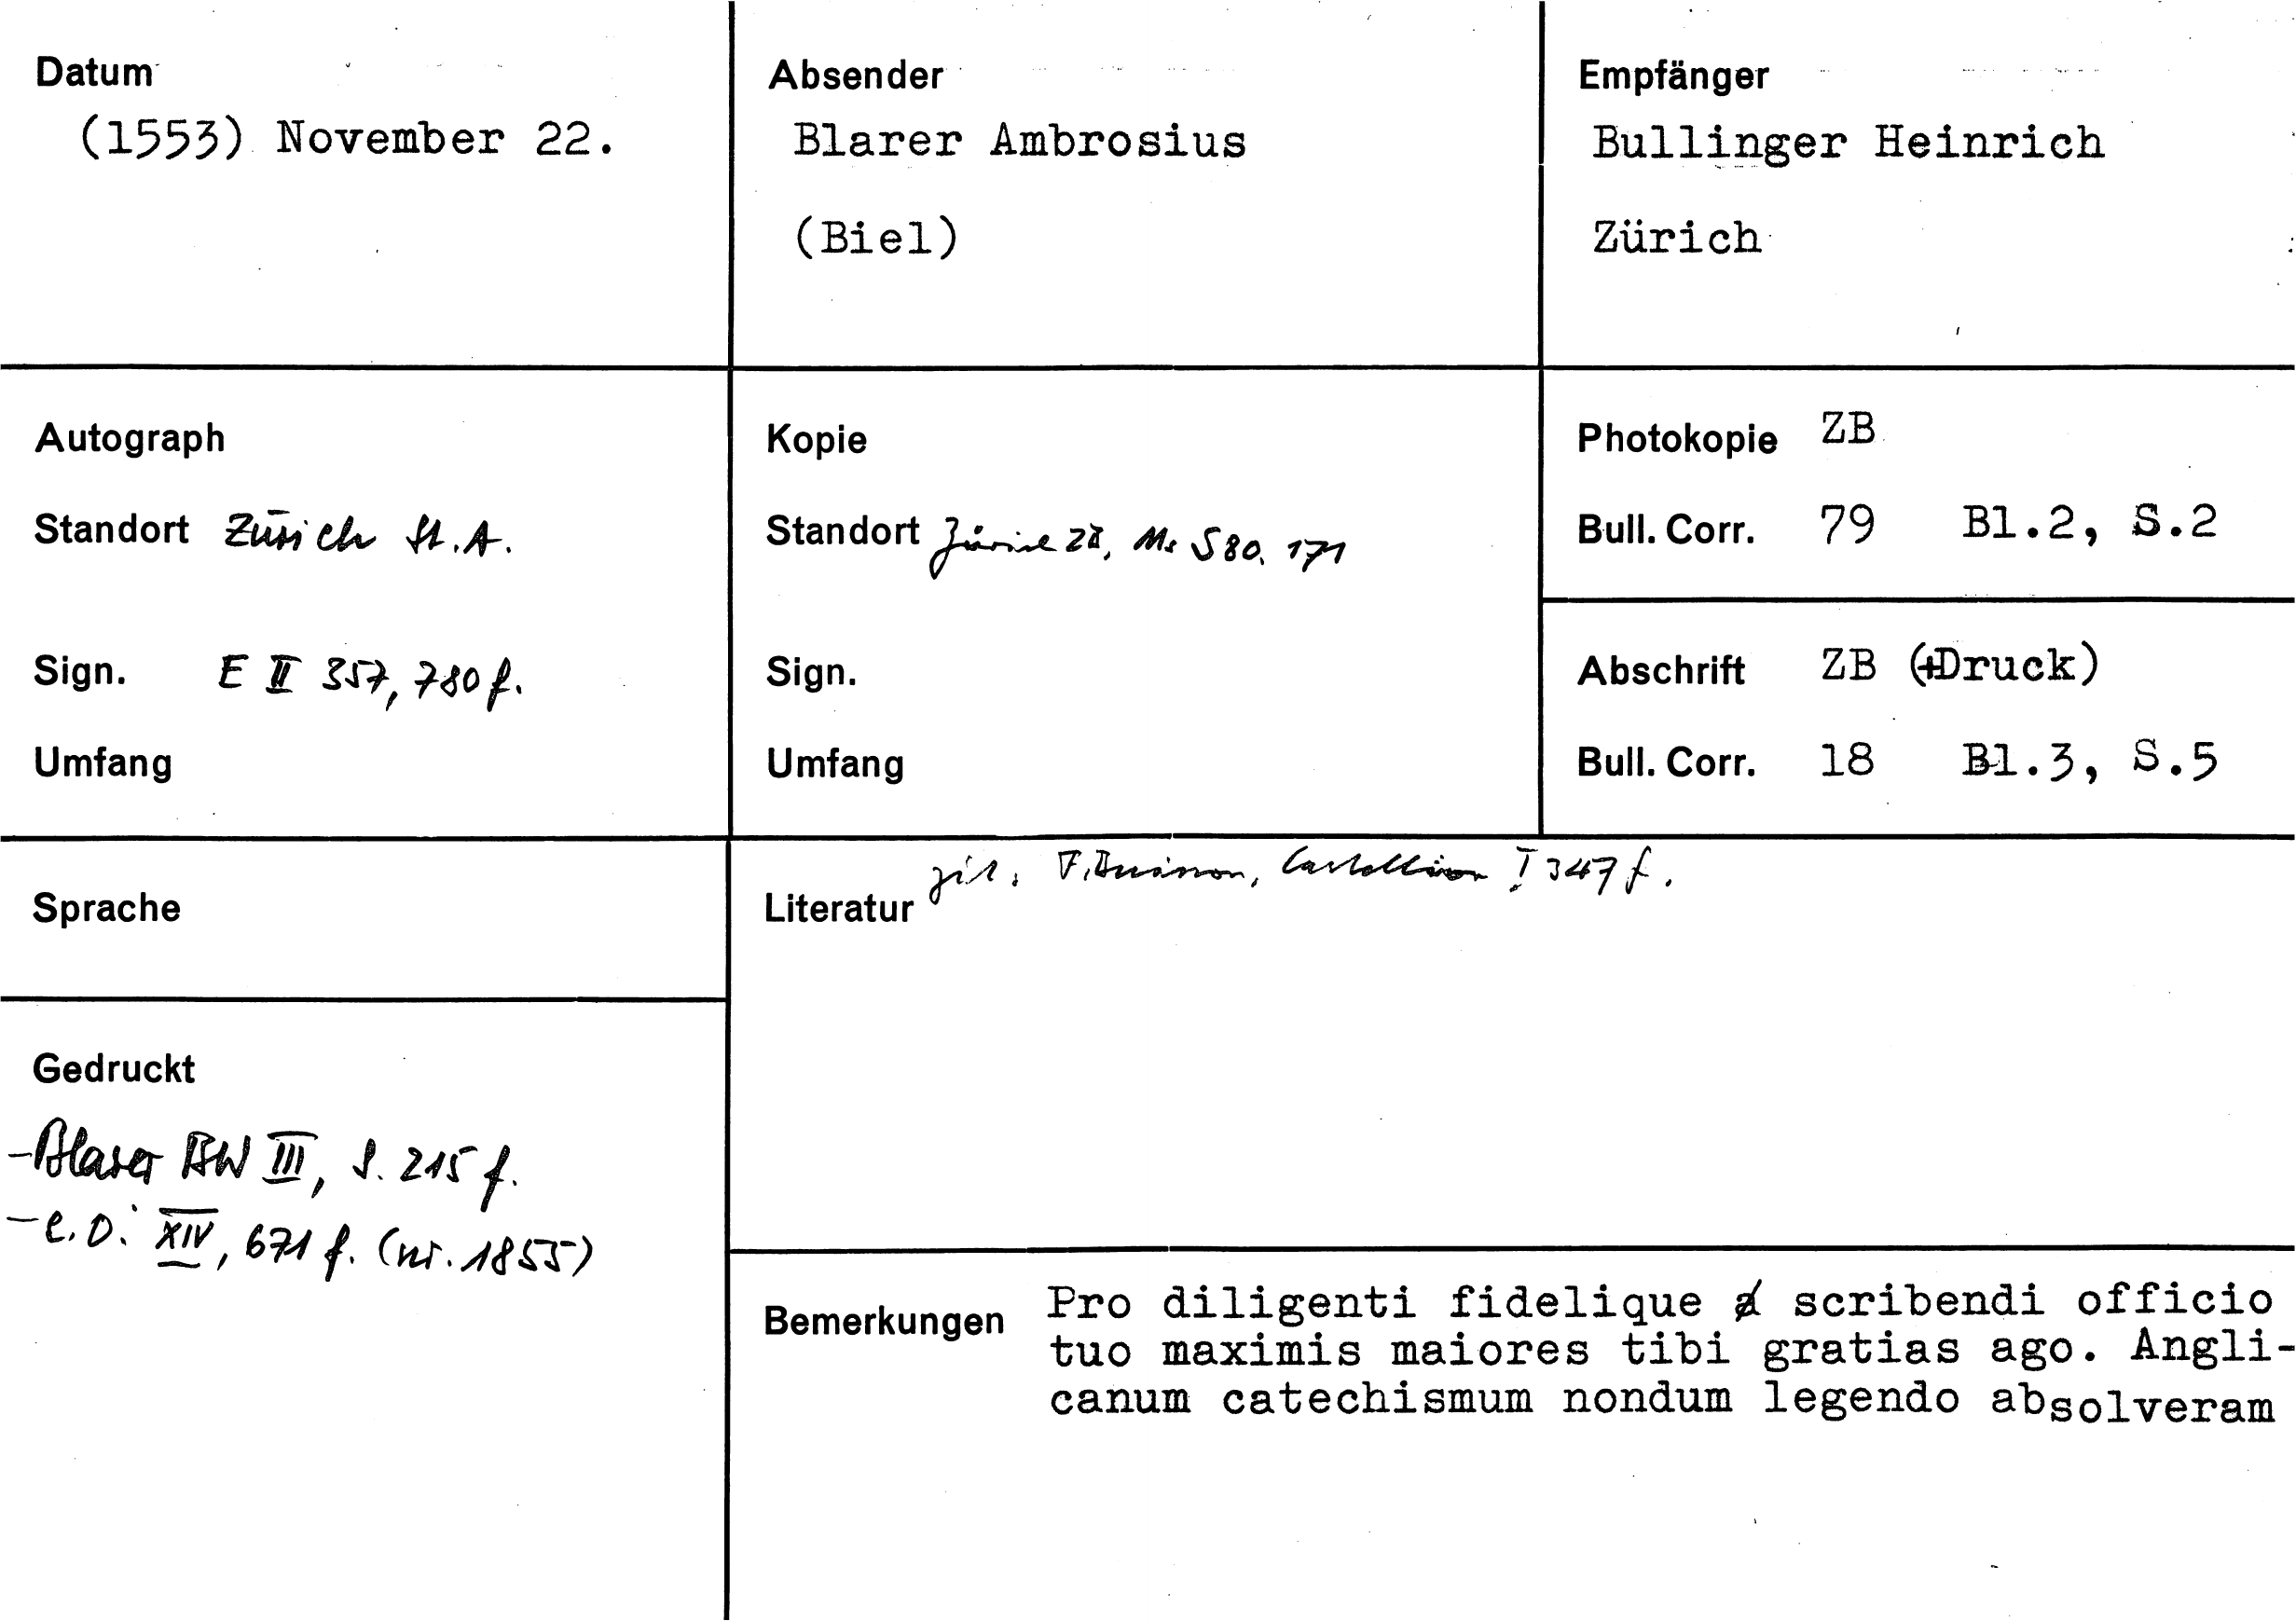 Datum
(1553) November 22.
Absender
Blarer Ambrosius
(Biel)
Empfänger
Bullinger Heinrich
Zürich
Autograph
Standort Zürich St.A.
Sign. E II 357, 780 f.
Umfang
Kopie
Standort Zürich ZB, Ms S 80, 171
Sign.
Umfang
Photokopie ZB
Bull. Corr. 79 Bl.2, S.2
Abschrift ZB (+Druck)
Bull. Corr. 18 Bl.3, S.5
Sprache
Literatur zit. F. Buisson, Castellion I 347 f.
Gedruckt
- Blarer BW III, S. 215 f.
- C.O. XIV, 671 f. (nr. 1855)
Bemerkungen Pro diligenti fidelique scribendi officio
tuo maximis maiores tibi gratias ago. Angli-
canum catechismum nondum legendo absolveram